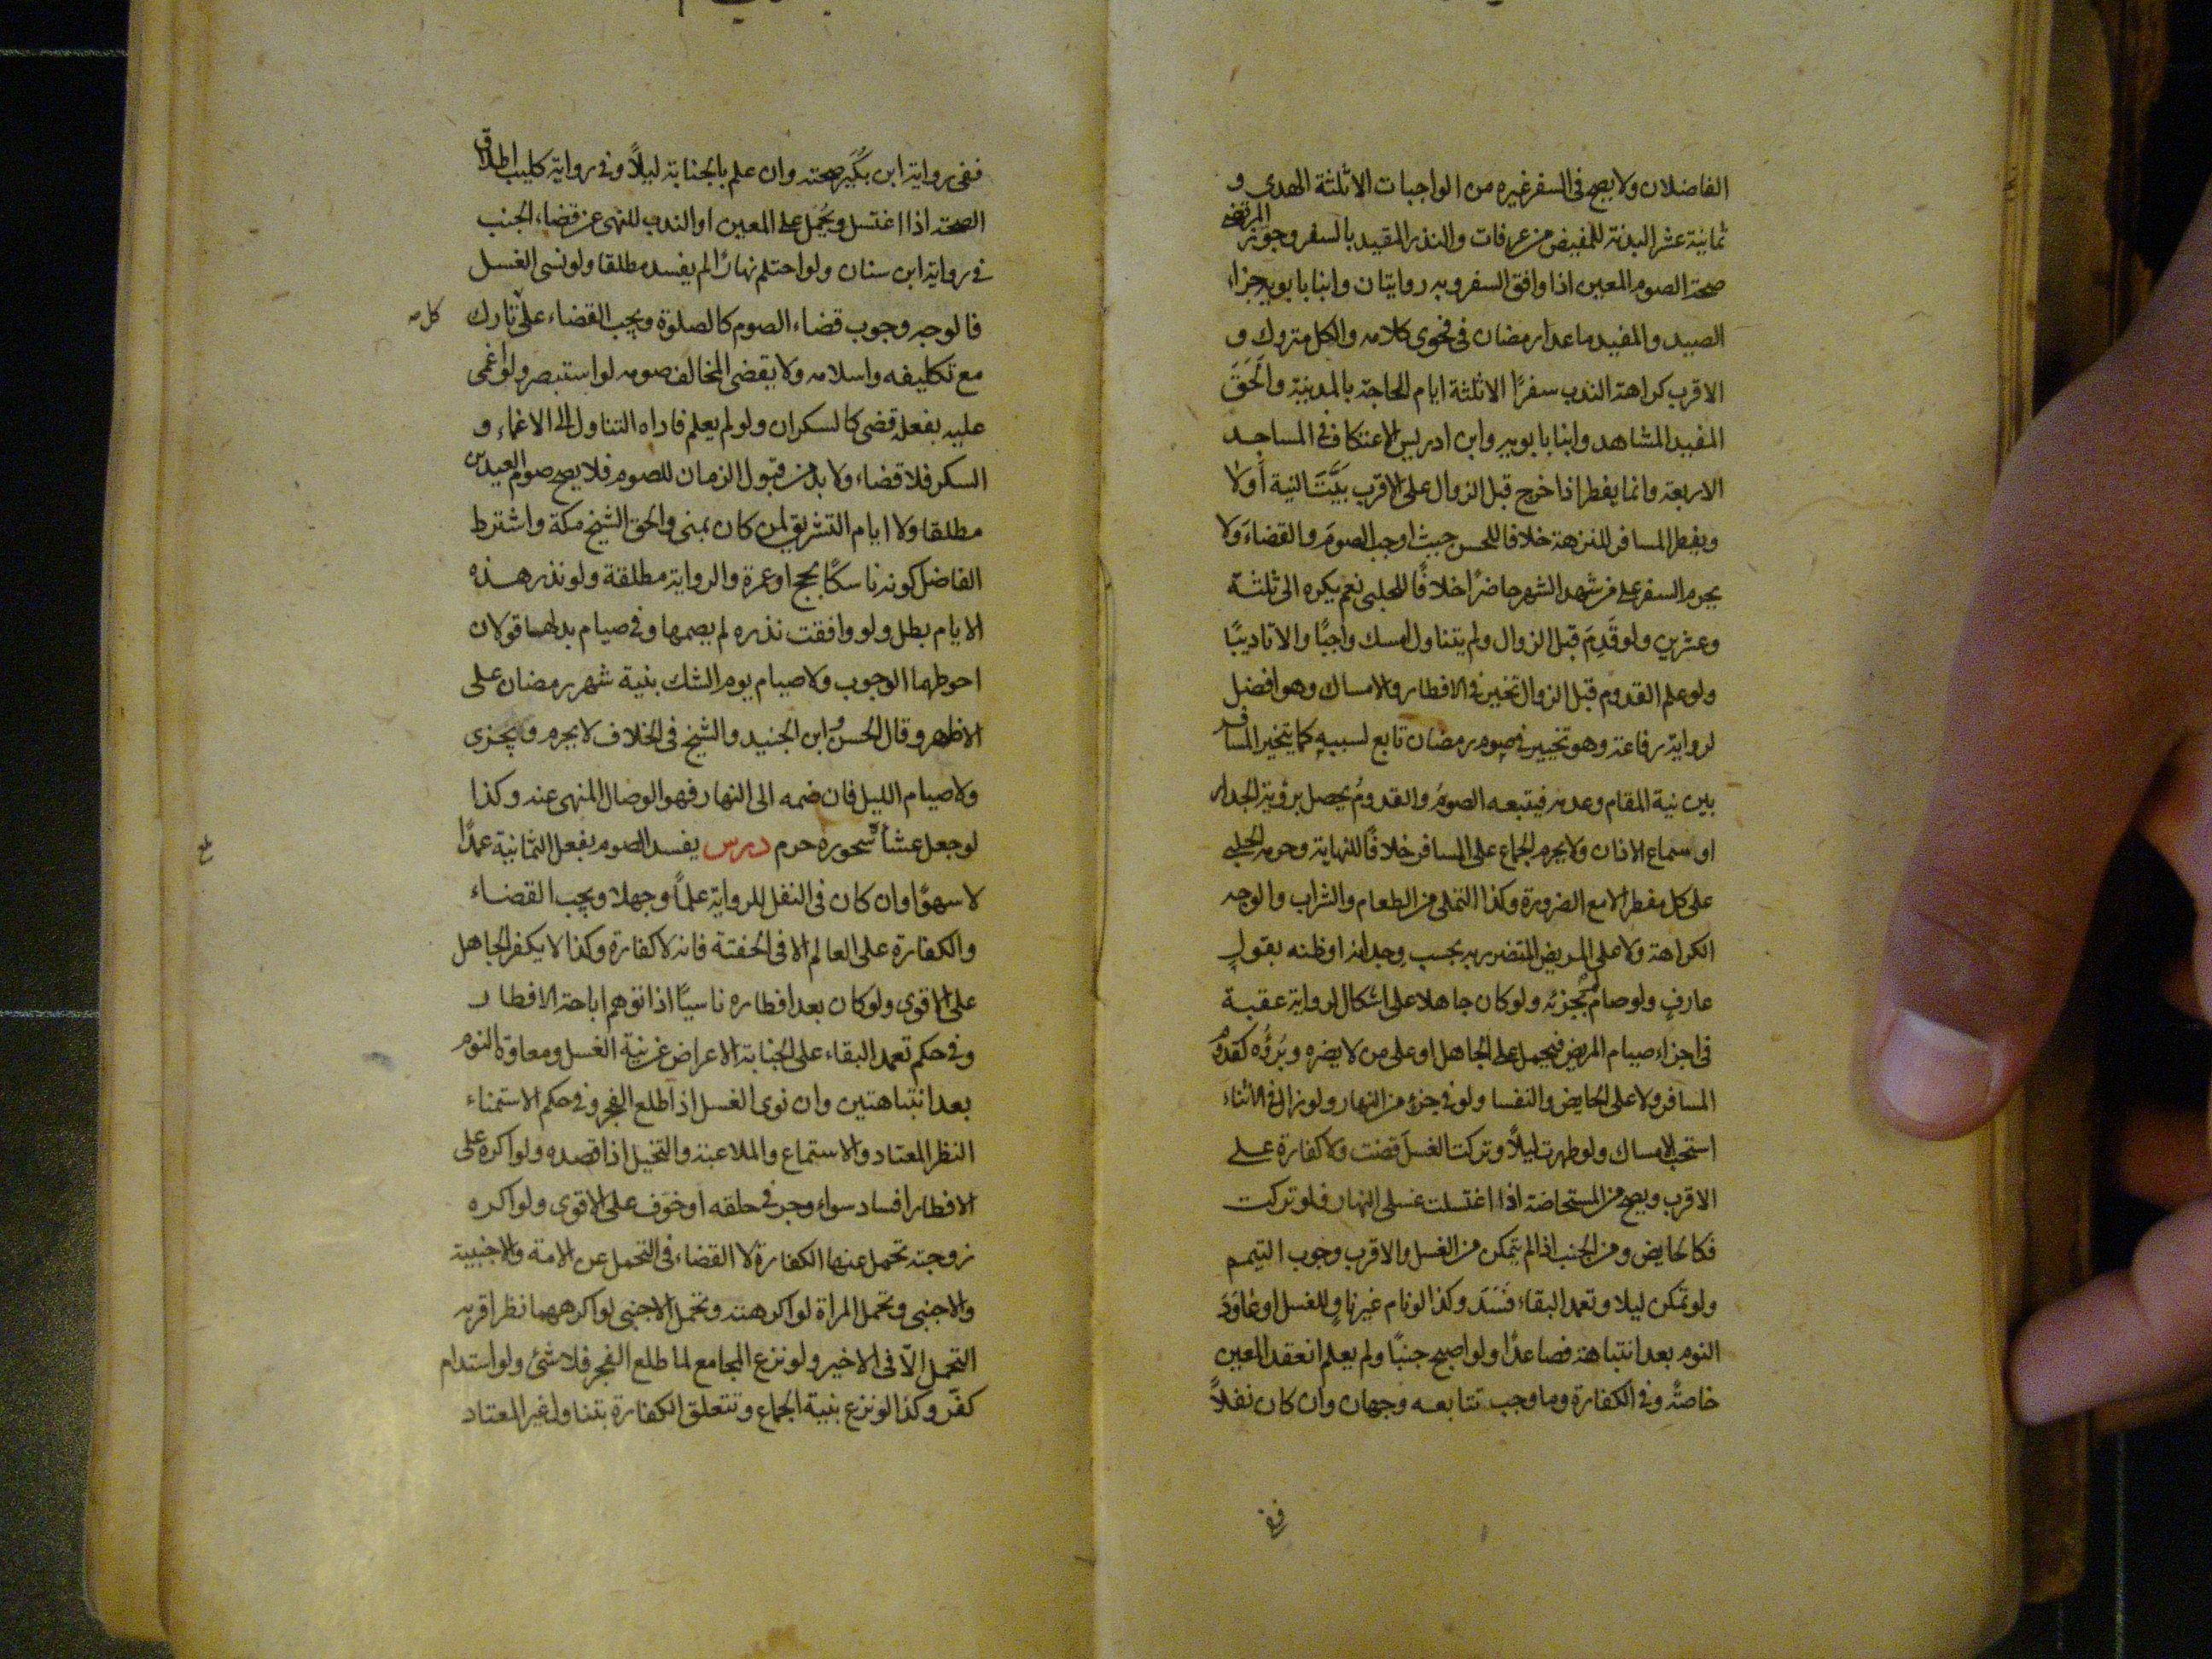 الفاضلان ولا يصح فى السفر غيره من الواجبات الا ثلثة الهدي و
ثمانية عشر البدنة للمفيض من عرفات والنذر المقيد بالسفر وجوّز المرتضى
صحة الصوم المعين اذا وافق السفر وبه روايتان وابنا بابويه جزاء
الصيد والمفيد ماعدا رمضان فى فحوى كلامه والكل متروك و
الاقرب كراهة الندب سفرًا الا ثلثة ايام للحاجة بالمدينة والحَقَ
المفيد المشاهد وابنا بابويه وابن ادريس الاعتكاف فى المساجد
الاربعة وانما يفطر اذا خرج قبل الزوال على الاقرب بَيَّتَ النية أولا
ويفطر المسافر للنزهة خلافا للحسن حيث اوجب الصومَ والقضاءَ ولا
يحرم السفر على من شهد الشهر حاضرًا خلافًا للحلبى نعم يكره الى ثلثة
وعشرين ولو قَدِمَ قبل الزوال ولم يتناول امسك واجبًا والا تاديبًا
ولو علم القدوم قبل الزوال تخير فى الافطار والامساك وهو افضل
لرواية رفاعة وهو تخيير فى صوم رمضان تابع لسببه كما يتخير المسافر
بين نية المقام وعدمه فيتبعه الصومُ والقدومُ يحصل برؤية الجدار
او سماع الاذان ولا يحرم الجماع على المسافر خلافًا للنهاية وحرمه الحلبي
على كل مفطر الا مع الضرورة وكذا التملى من الطعام والشراب والوجه
الكراهة ولا على المريض المتضرر به بحسب وجدانه او ظنه بقول
عارفٍ ولو صام لم يُجزئه ولو كان جاهلا على اشكال لرواية عقبة
فى اجزاء صيام المريض فيحمل على الجاهل او على من لا يضره وبُرؤُه كقدوم
المسافر ولا على الحايض والنفسا ولو فى جزءٍ من النهار ولو زال فى الاثناء
استحب الامساك ولو طهرت ليلاً وتركت الغسلَ قضت ولا كفارة على
الاقرب ويصح من المستحاضة اذا اغتسلت غسلى النهار فلو تركت
فكالحايض ومن الجنب اذا لم يتمكن من الغسل والاقرب وجوب التيمم
ولو تمكن ليلا وتعمد البقاء فَسَدَ وكذا لو نام غير ناوٍ للغسل او عاوَدَ
النوم بعد انتباهة فصاعدًا ولو اصبح جنبًا ولم يعلم انعقد المعين
خاصةً وفى الكفارة وما وجب تتابعه وجهان وان كان نفلاً
ففى
ففى رواية ابن بُكَير صحته وان علم بالجنابة ليلاً وفى رواية كليب اطلاق
الصحة اذا اغتسل ويُحمَل على المعين او الندب للنهى عن قضاء الجنب
فى رواية ابن سنان ولو احتلم نهارًا لم يفسد مطلقا ولو نسى الغسل
فالوجه وجوب قضاء الصوم كالصلوة ويجب القضاء على تارك
كل
مع تكليفه واسلامه ولا يقضى المخالف صومه لو استبصر ولو اغمى
عليه بفعله قضى كالسكران ولو لم يعلم فاداه التناول الى الاغماء و
السكر فلا قضاء ولا بد من قبول الزمان للصوم فلا يصح صوم العيدين
مطلقا ولا ايام التشريق لمن كان بمنى والحق الشيخ مكة واشترط
الفاضل كونه ناسكًا بحج او عمرة والرواية مطلقة ولو نذر هذه
الايام بطل ولو وافقت نذره لم يصمها وفى صيام بدلها قولان
احوطهما الوجوب ولا صيام يوم الشك بنية شهر رمضان على
الاظهر وقال الحسنُ وابن الجنيد والشيخ فى الخلاف لا يحرم ويجزى
ولا صيام الليل فان ضمه الى النهار فهو الوصال المنهى عنه وكذا
لو جعل عشاءه سحوره حرم درس يفسد الصوم بفعل الثمانية عمدًا
لا سهوًا وان كان فى النفل للرواية علمًا وجهلا ويجب القضاء
والكفارة على العالم الا فى الحقنة فانه لا كفارة وكذا لا يكفر الجاهل
على الاقوى ولو كان بعد افطاره ناسيًا اذا توهم اباحة الافطار
وفى حكم تعمد البقاء على الجنابة الاعراض عن نية الغسل ومعاودة النوم
بعد انتباهتين وان نوى الغسل اذا طلع الفجر وفى حكم الاستمناء
النظر المعتاد والاستماع والملاعبة والتخيل اذا قصده ولو اكره على
الافطار افساد سواء وجر فى حلقه او خوّف على الاقوى ولو اكره
زوجته تحمل عنها الكفارة لا القضاء فى التحمل عن الامة والاجنبية
والاجنبى وتحمل المراة لو اكرهته وتحمل الاجنبى لو اكرههما نظر اقربه
التحمل الّا فى الاخير ولو نزع المجامع لما طلع الفجر فلا شئ ولو استدام
كفّر وكذا لو نزع بنية الجماع وتتعلق الكفارة بتناول غير المعتاد